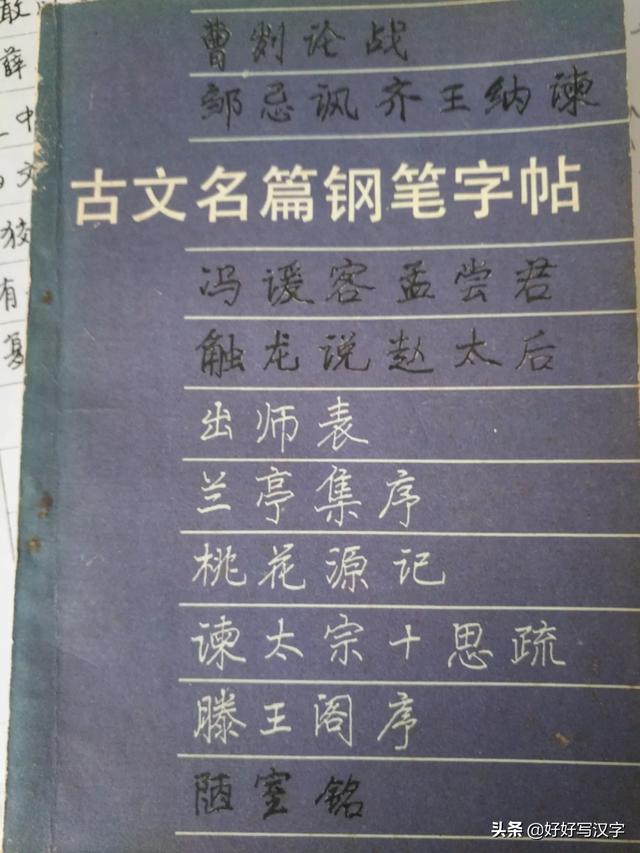 敢
薛
中
文
狡
有
复
曹刿论战
邹忌讽齐王纳谏
古文名篇钢笔字帖
冯谖客孟尝君
触龙说赵太后
出师表
兰亭集序
桃花源记
谏太宗十思疏
滕王阁序
陋室铭
头条 @好好写汉字